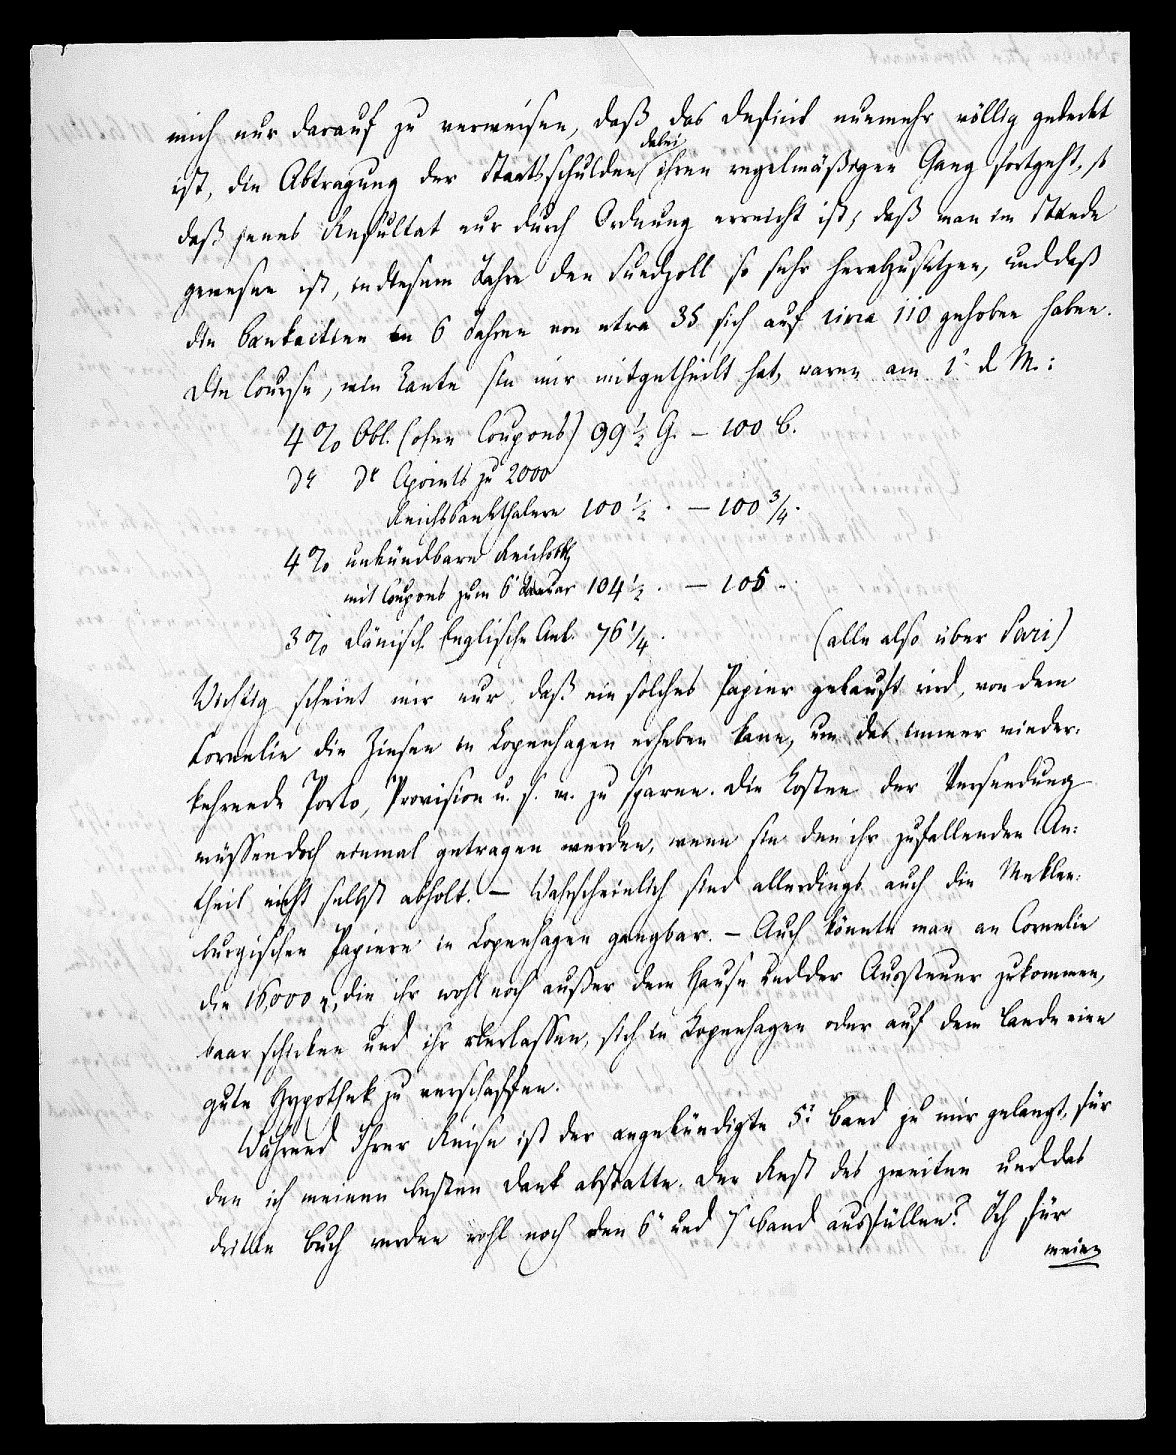 mich nur darauf zu verweisen, daß das Deficit nunmehr völlig gedeckt
ist, die Abtragung der Staatsschulden dabei ihren regelmäßigen Gang fortgeht, u
daß jenes Resultat nur durch Ordnung erreicht ist; daß man im Stande
gewesen ist, in diesem Jahre den Sundzoll so sehr herabzusetzen, und daß
die Bankactien in 6 Jahren von etwa 35 sich auf circa 110 gehoben haben.
Die Course, wie Tante sie mir mitgetheilt hat, waren am 1t d. M.:
4 % Obl. (ohne Coupons) 99 1/2 G. – 100 B.
do do Apoints zu 2000
Reichsbankthalern 100 1/2 . – 100 3/4 .
4 % unkündbare
mit Coupons zum 104 1/2 . – 105 .
3 % Dänisch Englische Anl. 76 1/4 . (alle also über Pari)
Wichtig scheint mir nur, daß ein solches Papier gekauft wird, von dem
Cornelie die Zinsen in Copenhagen erheben kann, um das immer wieder-
kehrende Porto, Provision u. s. w. zu sparen. Die Kosten der Versendung
müssen doch einmal getragen werden, wenn sie den ihr zufallenden An-
theil nicht selbst abholt. – Wahrscheinlich sind allerdings auch die Meklen-
burgischen Papiere in Copenhagen gangbar. – Auch könnte man an Cornelie
die 16000 , die ihr wohl noch außer dem Hause und der Aussteuer zukommen,
baar schicken und ihr überlassen, sich in Kopenhagen oder auf dem Lande eine
gute Hypothek zu verschaffen.
Während Ihrer Reise ist der angekündigte 5t Band zu mir gelangt, für
den ich meinen besten Dank abstatte. Der Rest des zweiten und das
dritte Buch werden wohl noch den 6t und 7t Band ausfüllen? Ich für
meinen